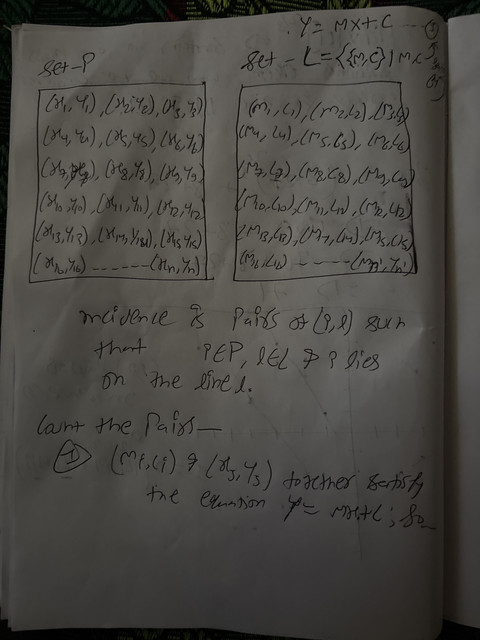 Y = MX + C
Set-P
Set - L = {{M,C} | M
(x₁, y₁), (x₂, y₂), (x₃, y₃)
(x₄, y₄), (x₅, y₅), (x₆, y₆)
(x₇, y₇), (x₈, y₈), (x₉, y₉)
(x₁₀, y₁₀), (x₁₁, y₁₁), (x₁₂, y₁₂)
(x₁₃, y₁₃), (x₁₄, y₁₄), (x₁₅, y₁₅)
(x₁₆, y₁₆) ------- (xₙ, yₙ)
(M₁, C₁), (M₂, C₂),
(M₄, C₄), (M₅, C₅), (M₆, C₆)
(M₇, C₇), (M₈, C₈), (M₉, C₉)
(M₁₀, C₁₀), (M₁₁, C₁₁), (M₁₂, C₁₂)
(M₁₃, C₁₃),
(M₁₆, C₁₆) -------
incidence is Pairs of (P, l) such
that P∈P, l∈L & P lies
on the line l.
Count the Pairs—
① (Mi, Ci) & (xj, yj) together satisfy
the equation y = mx+c; So